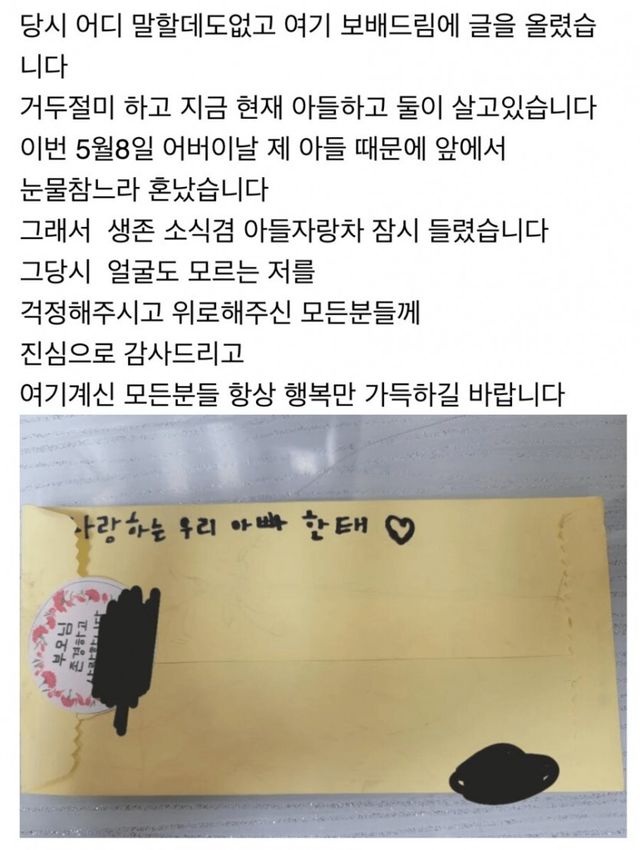 당시 어디 말할데도없고 여기 보배드림에 글을 올렸습
니다
거두절미 하고 지금 현재 아들하고 둘이 살고있습니다
이번 5월8일 어버이날 제 아들 때문에 앞에서
눈물참느라 혼났습니다
그래서 생존 소식겸 아들자랑차 잠시 들렸습니다
그당시 얼굴도 모르는 저를
걱정해주시고 위로해주신 모든분들께
진심으로 감사드리고
여기계신 모든분들 항상 행복만 가득하길 바랍니다
사랑하는 우리 아빠 한태
부모님
존경하고